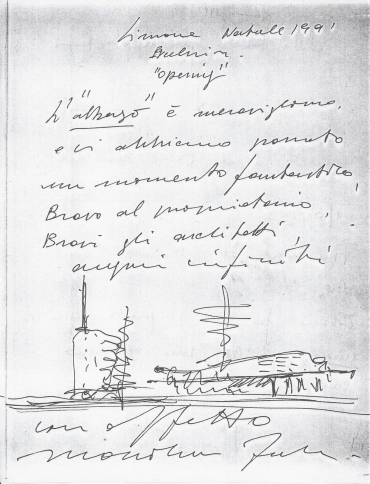 Natale 1991
"opening"
L'"albergo" è meraviglioso,
e vi abbiamo passato
un momento fantastico,
Bravo al proprietario,
Bravi gli architetti,
auguri infiniti
con affetto